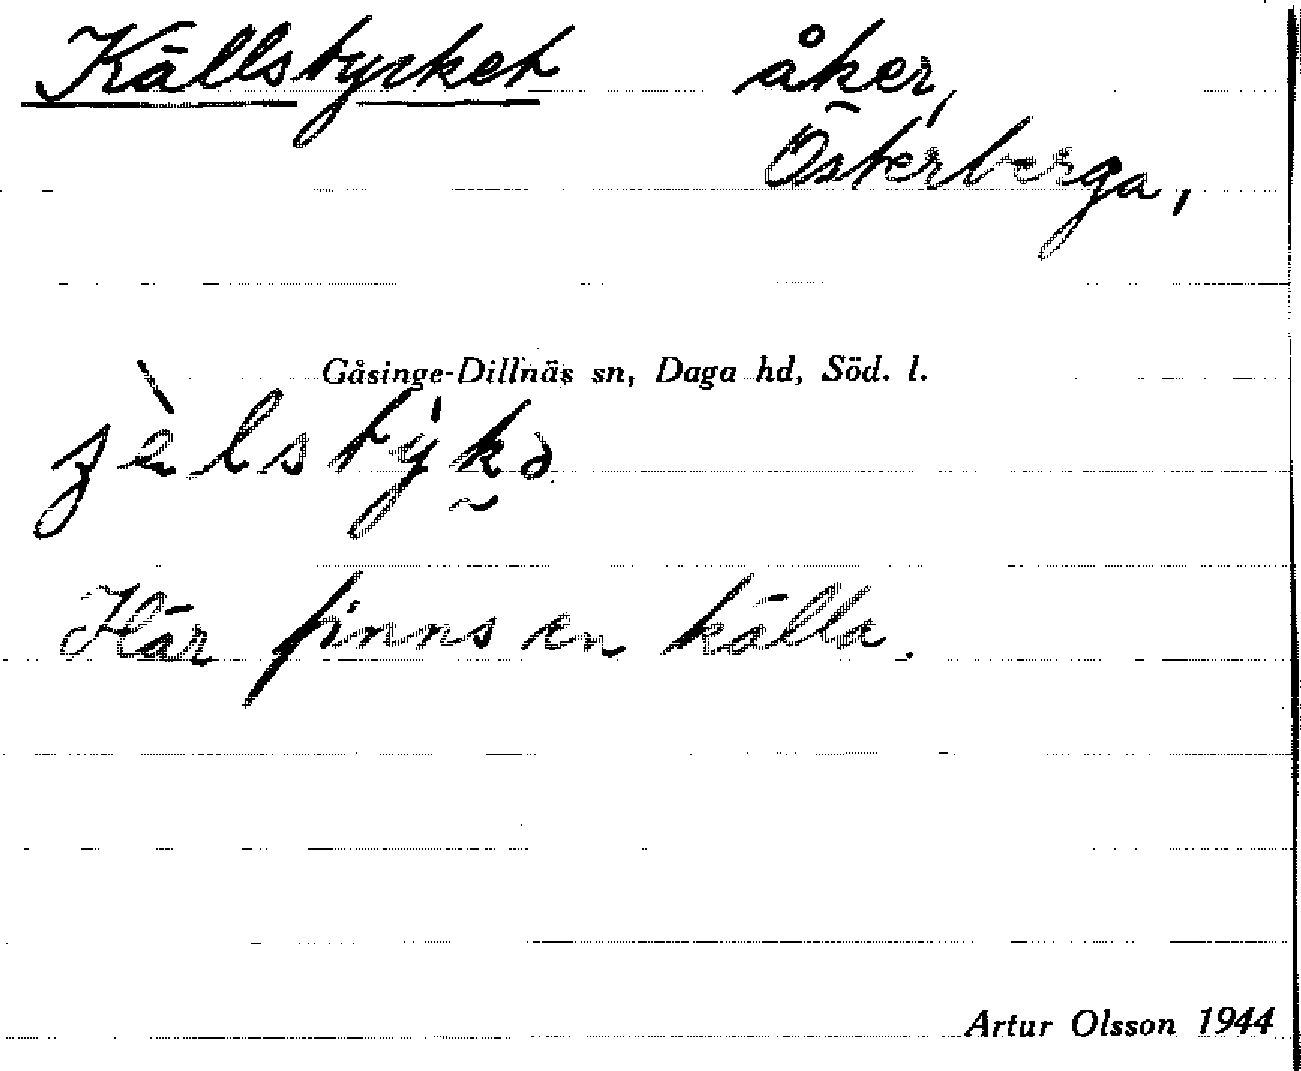 Källstycket åker,
Österberga,
Gåsinge-Dillnäs sn, Daga hd, Söd. l.
Här finns en källa.
Artur Olsson 1944